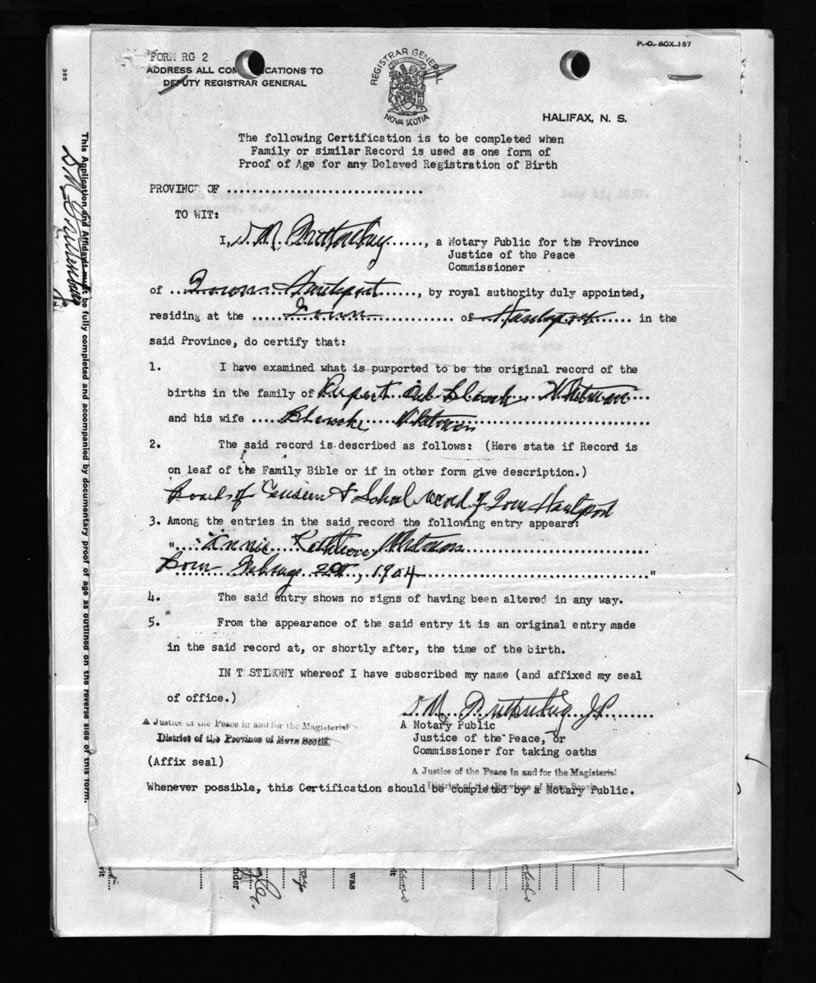 P.O. BOX 187
FORM RG 2
ADDRESS ALL COMMUNICATIONS TO
DEPUTY REGISTRAR GENERAL
REGISTRAR GENERAL
NOVA SCOTIA
HALIFAX, N. S.
The following Certification is to be completed when
Family or similar Record is used as one form of
Proof of Age for any Delayed Registration of Birth
PROVINCE OF
TO WIT:
I, D. M. , a Notary Public for the Province
Justice of the Peace
Commissioner
of Town Hantsport, by royal authority duly appointed,
residing at the Town of Hantsport in the
said Province, do certify that:
1. I have examined what is purported to be the original record of the
births in the family of Rupert Whitman
and his wife Blanche Whitman
2. The said record is described as follows: (Here state if Record is
on leaf of the Family Bible or if in other form give description.)
School record of Town Hantsport
3. Among the entries in the said record the following entry appears:
" Annie Whitman
Born 1904 "
4. The said entry shows no signs of having been altered in any way.
5. From the appearance of the said entry it is an original entry made
in the said record at, or shortly after, the time of the birth.
IN TESTIMONY whereof I have subscribed my name (and affixed my seal
of office.)
D. M. J.P.
A Justice of the Peace in and for the Magisterial
District of the Province of Nova Scotia
A Notary Public
Justice of the Peace, or
Commissioner for taking oaths
(Affix seal)
A Justice of the Peace in and for the Magisterial
District of the Province of Nova Scotia
Whenever possible, this Certification should be completed by a Notary Public.
This Application and Affidavit must be fully completed and accompanied by documentary proof of age as outlined on the reverse side of this form.
was